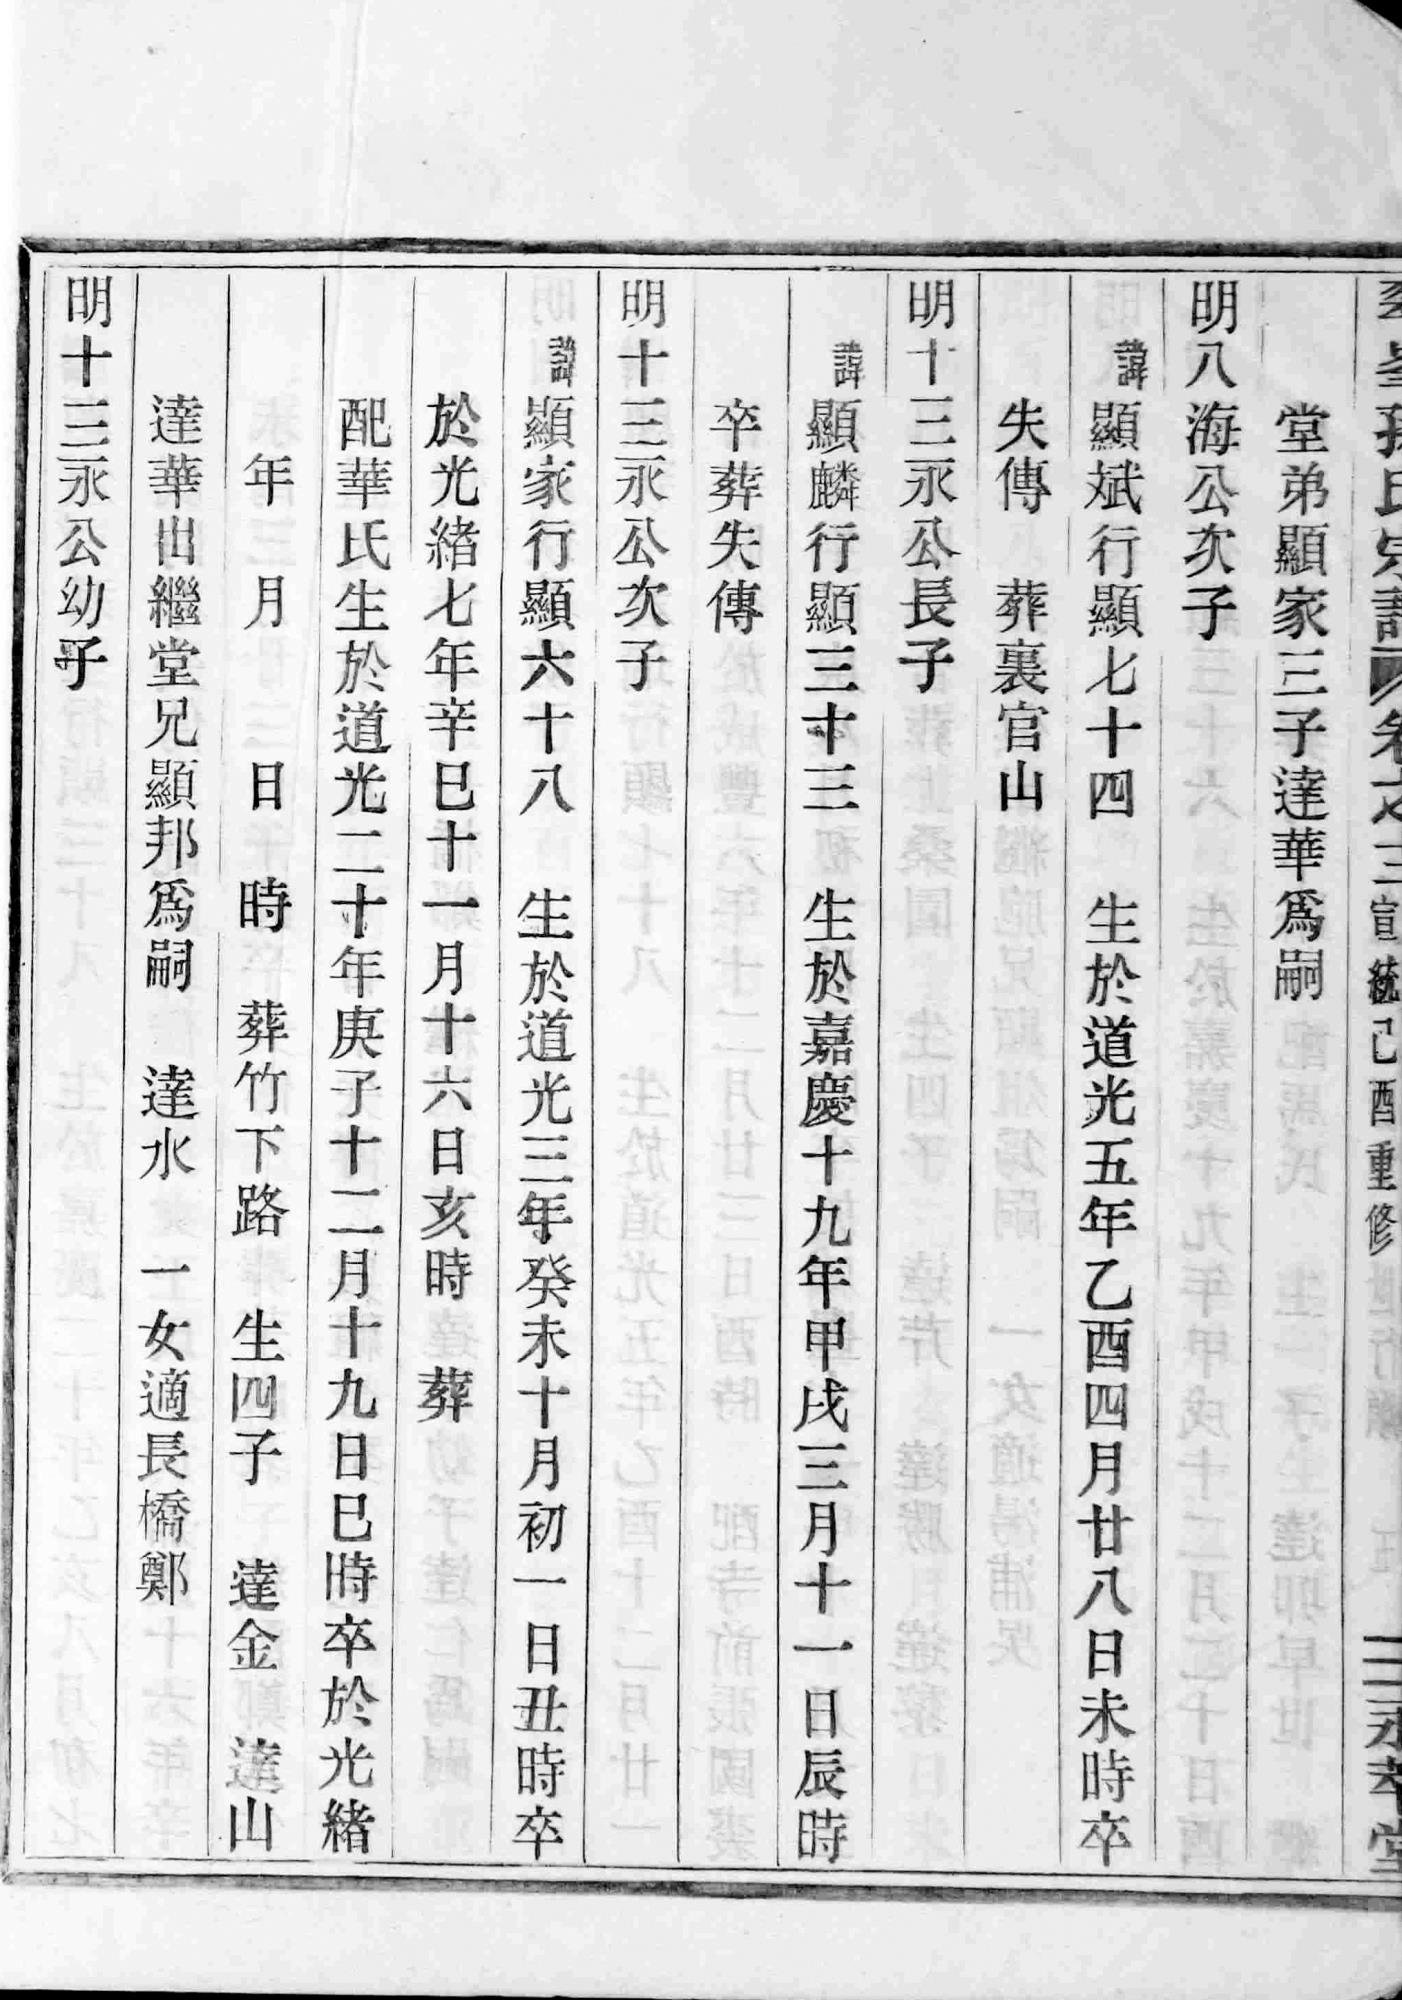 孫氏宗譜 卷之三 宣統己酉重修 永孝堂
堂弟顯家三子達華爲嗣
明八海公次子
諱顯斌行顯七十四 生於道光五年乙酉四月廿八日未時卒
失傳 葬裏官山
明十三永公長子
諱顯麟行顯三十三 生於嘉慶十九年甲戌三月十一日辰時
卒葬失傳
明十三永公次子
諱顯家行顯六十八 生於道光三年癸未十月初一日丑時卒
於光緒七年辛巳十一月十六日亥時 葬
配華氏生於道光二十年庚子十二月十九日巳時卒於光緒
年 月 日 時 葬竹下路 生四子 達金 達山
達華出繼堂兄顯邦爲嗣 達水 一女適長橋鄭
明十三永公幼子